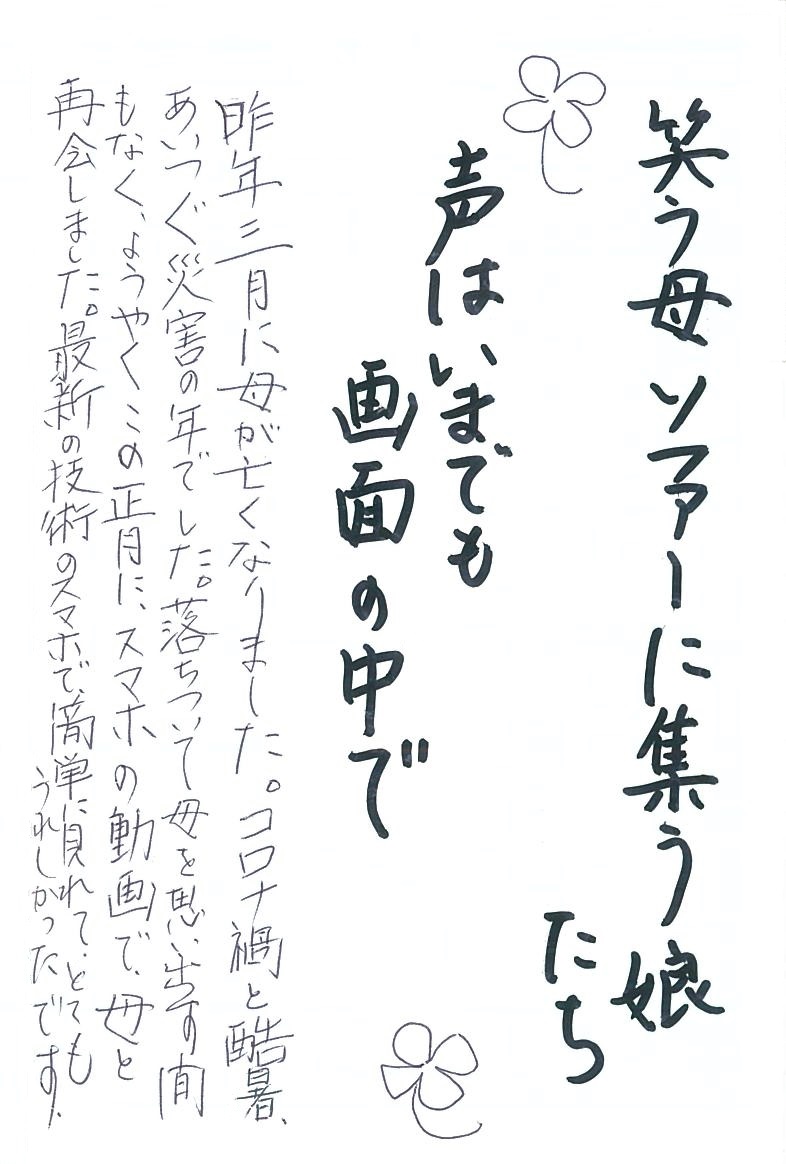 笑う母 ソファーに集う娘
たち
声はいまでも
画面の中で
昨年三月に母が亡くなりました。コロナ禍と酷暑、
あいつぐ災害の年でした。落ちついて母を思い出す間
もなく、ようやくこの正月に、スマホの動画で、母と
再会しました。最新の技術のスマホで、簡単に見れて、とても
うれしかったです。